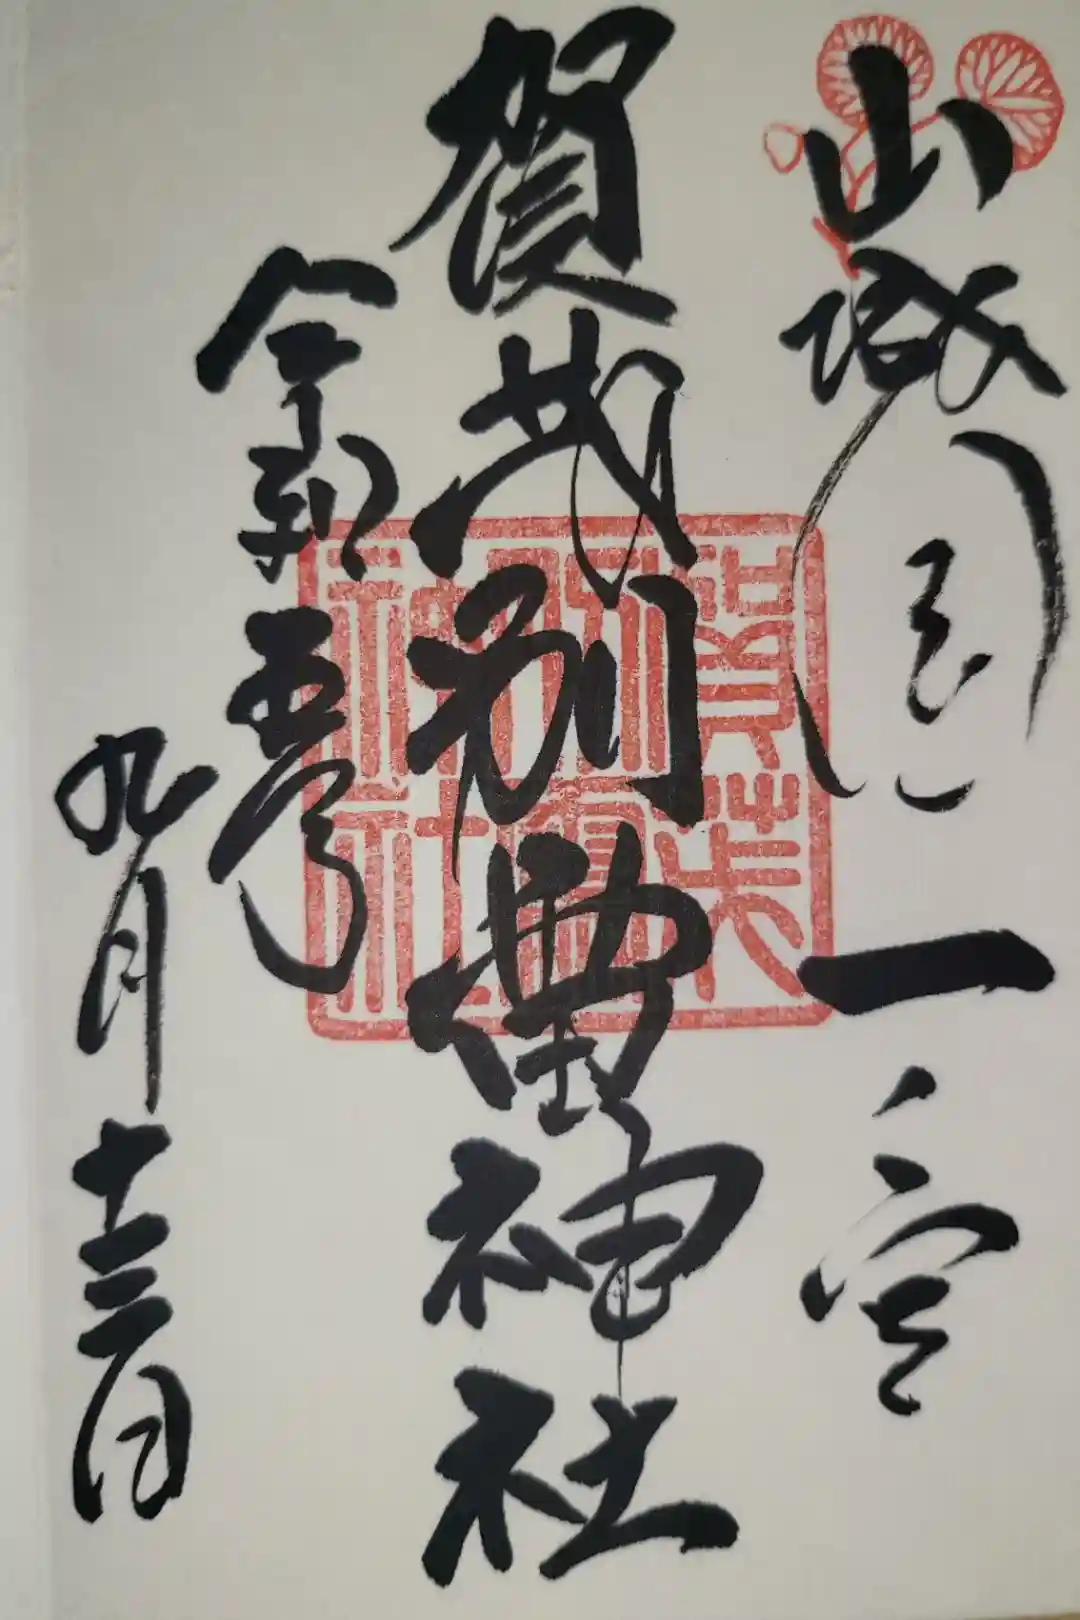 山城国一宮
賀茂別雷神社
令和五年
九月十三日
賀茂別雷神社